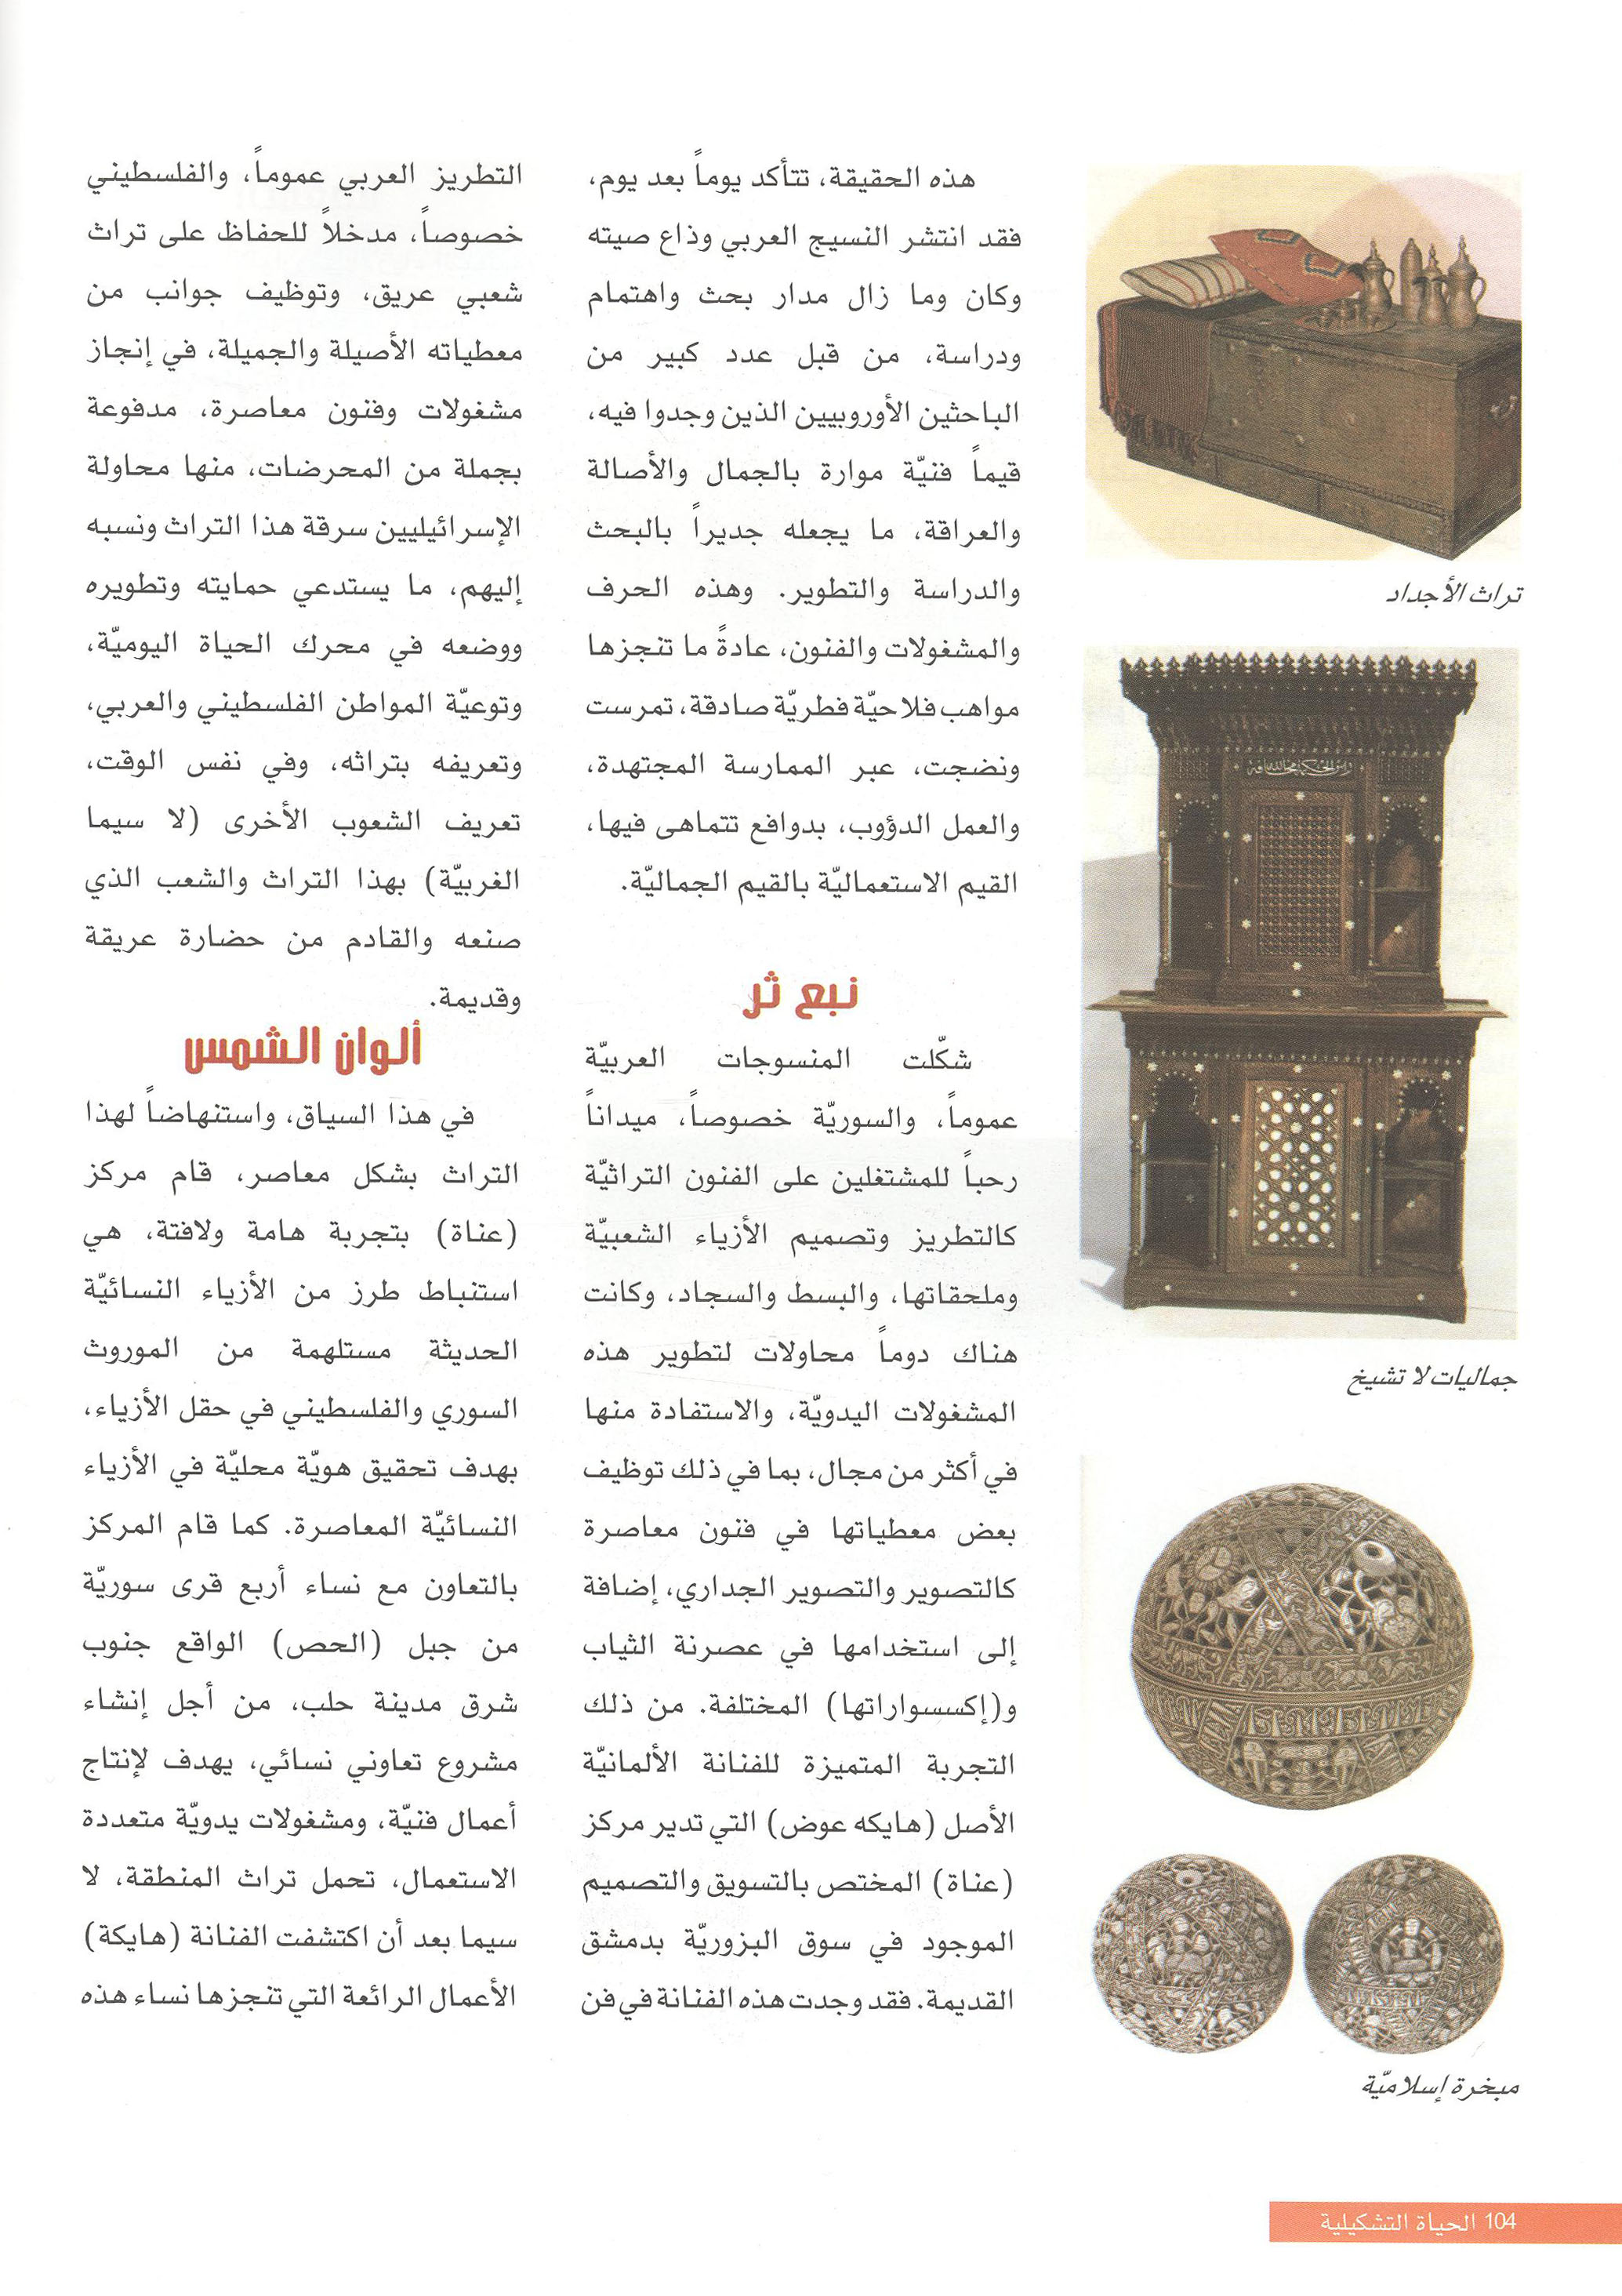 هذه الحقيقة، تتأكد يوماً بعد يوم،
فقد انتشر النسيج العربي وذاع صيته
وكان وما زال مدار بحث واهتمام
ودراسة، من قبل عدد كبير من
الباحثين الأوروبيين الذين وجدوا فيه،
قيماً فنيّة موارة بالجمال والأصالة
والعراقة، ما يجعله جديراً بالبحث
والدراسة والتطوير. وهذه الحرف
والمشغولات والفنون، عادةً ما تنجزها
مواهب فلاحيّة فطريّة صادقة، تمرست
ونضجت، عبر الممارسة المجتهدة،
والعمل الدؤوب، بدوافع تتماهى فيها،
القيم الاستعماليّة بالقيم الجماليّة.
نبع ثر
شكّلت المنسوجات العربيّة
عموماً، والسوريّة خصوصاً، ميداناً
رحباً للمشتغلين على الفنون التراثيّة
كالتطريز وتصميم الأزياء الشعبيّة
وملحقاتها، والبسط والسجاد، وكانت
هناك دوماً محاولات لتطوير هذه
المشغولات اليدويّة، والاستفادة منها
في أكثر من مجال، بما في ذلك توظيف
بعض معطياتها في فنون معاصرة
كالتصوير والتصوير الجداري، إضافة
إلى استخدامها في عصرنة الثياب
و(إكسسواراتها) المختلفة. من ذلك
التجربة المتميزة للفنانة الألمانيّة
الأصل (هايكه عوض) التي تدير مركز
(عناة) المختص بالتسويق والتصميم
الموجود في سوق البزوريّة بدمشق
القديمة. فقد وجدت هذه الفنانة في فن
التطريز العربي عموماً، والفلسطيني
خصوصاً، مدخلاً للحفاظ على تراث
شعبي عريق، وتوظيف جوانب من
معطياته الأصيلة والجميلة، في إنجاز
مشغولات وفنون معاصرة، مدفوعة
بجملة من المحرضات، منها محاولة
الإسرائيليين سرقة هذا التراث ونسبه
إليهم، ما يستدعي حمايته وتطويره
ووضعه في محرك الحياة اليوميّة،
وتوعيّة المواطن الفلسطيني والعربي،
وتعريفه بتراثه، وفي نفس الوقت،
تعريف الشعوب الأخرى (لا سيما
الغربيّة) بهذا التراث والشعب الذي
صنعه والقادم من حضارة عريقة
وقديمة.
ألوان الشمس
في هذا السياق، واستنهاضاً لهذا
التراث بشكل معاصر، قام مركز
(عناة) بتجربة هامة ولافتة، هي
استنباط طرز من الأزياء النسائيّة
الحديثة مستلهمة من الموروث
السوري والفلسطيني في حقل الأزياء،
بهدف تحقيق هويّة محليّة في الأزياء
النسائيّة المعاصرة. كما قام المركز
بالتعاون مع نساء أربع قرى سوريّة
من جبل (الحص) الواقع جنوب
شرق مدينة حلب، من أجل إنشاء
مشروع تعاوني نسائي، يهدف لإنتاج
أعمال فنيّة، ومشغولات يدويّة متعددة
الاستعمال، تحمل تراث المنطقة، لا
سيما بعد أن اكتشفت الفنانة (هايكة)
الأعمال الرائعة التي تنجزها نساء هذه
تراث الأجداد
جماليات لا تشيخ
مبخرة إسلاميّة
104 الحياة التشكيلية